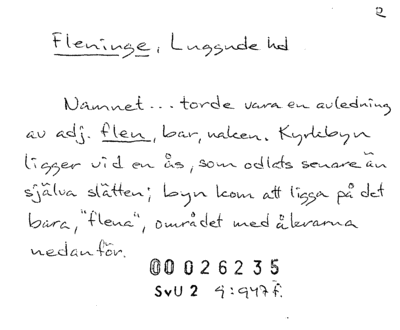 2
Fleninge, Luggude hd
Namnet... torde vara en avledning
av adj. flen, bar, naken. Kyrkbyn
ligger vid en ås, som odlats senare än
själva slätten; byn kom att ligga på det
bara, "flena", området med åkrarna
nedanför.
00026235
SvU 2 4:947 f.